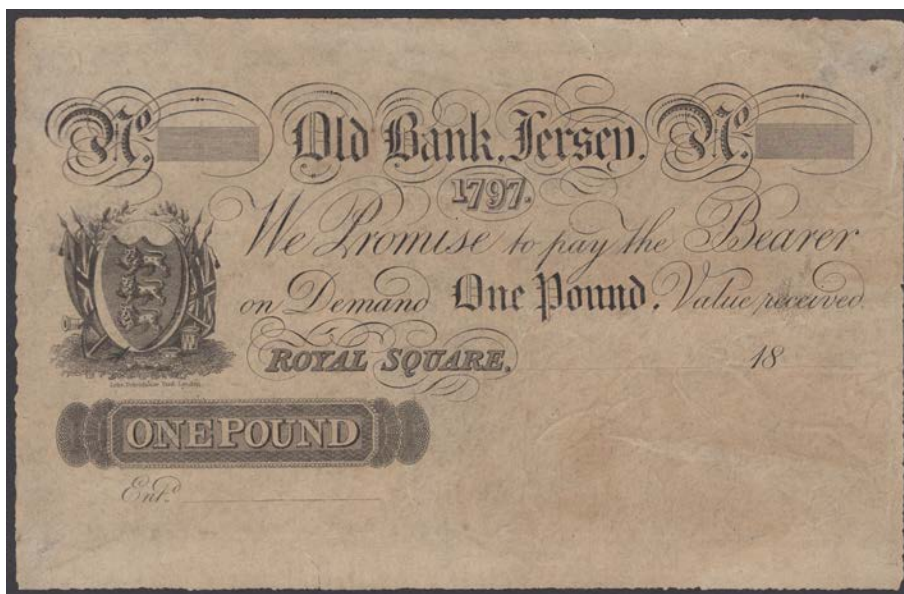 No. Old Bank, Jersey. No.
1797.
We Promise to pay the Bearer
on Demand One Pound. Value received
ROYAL SQUARE, 18
ONE POUND
Entd.